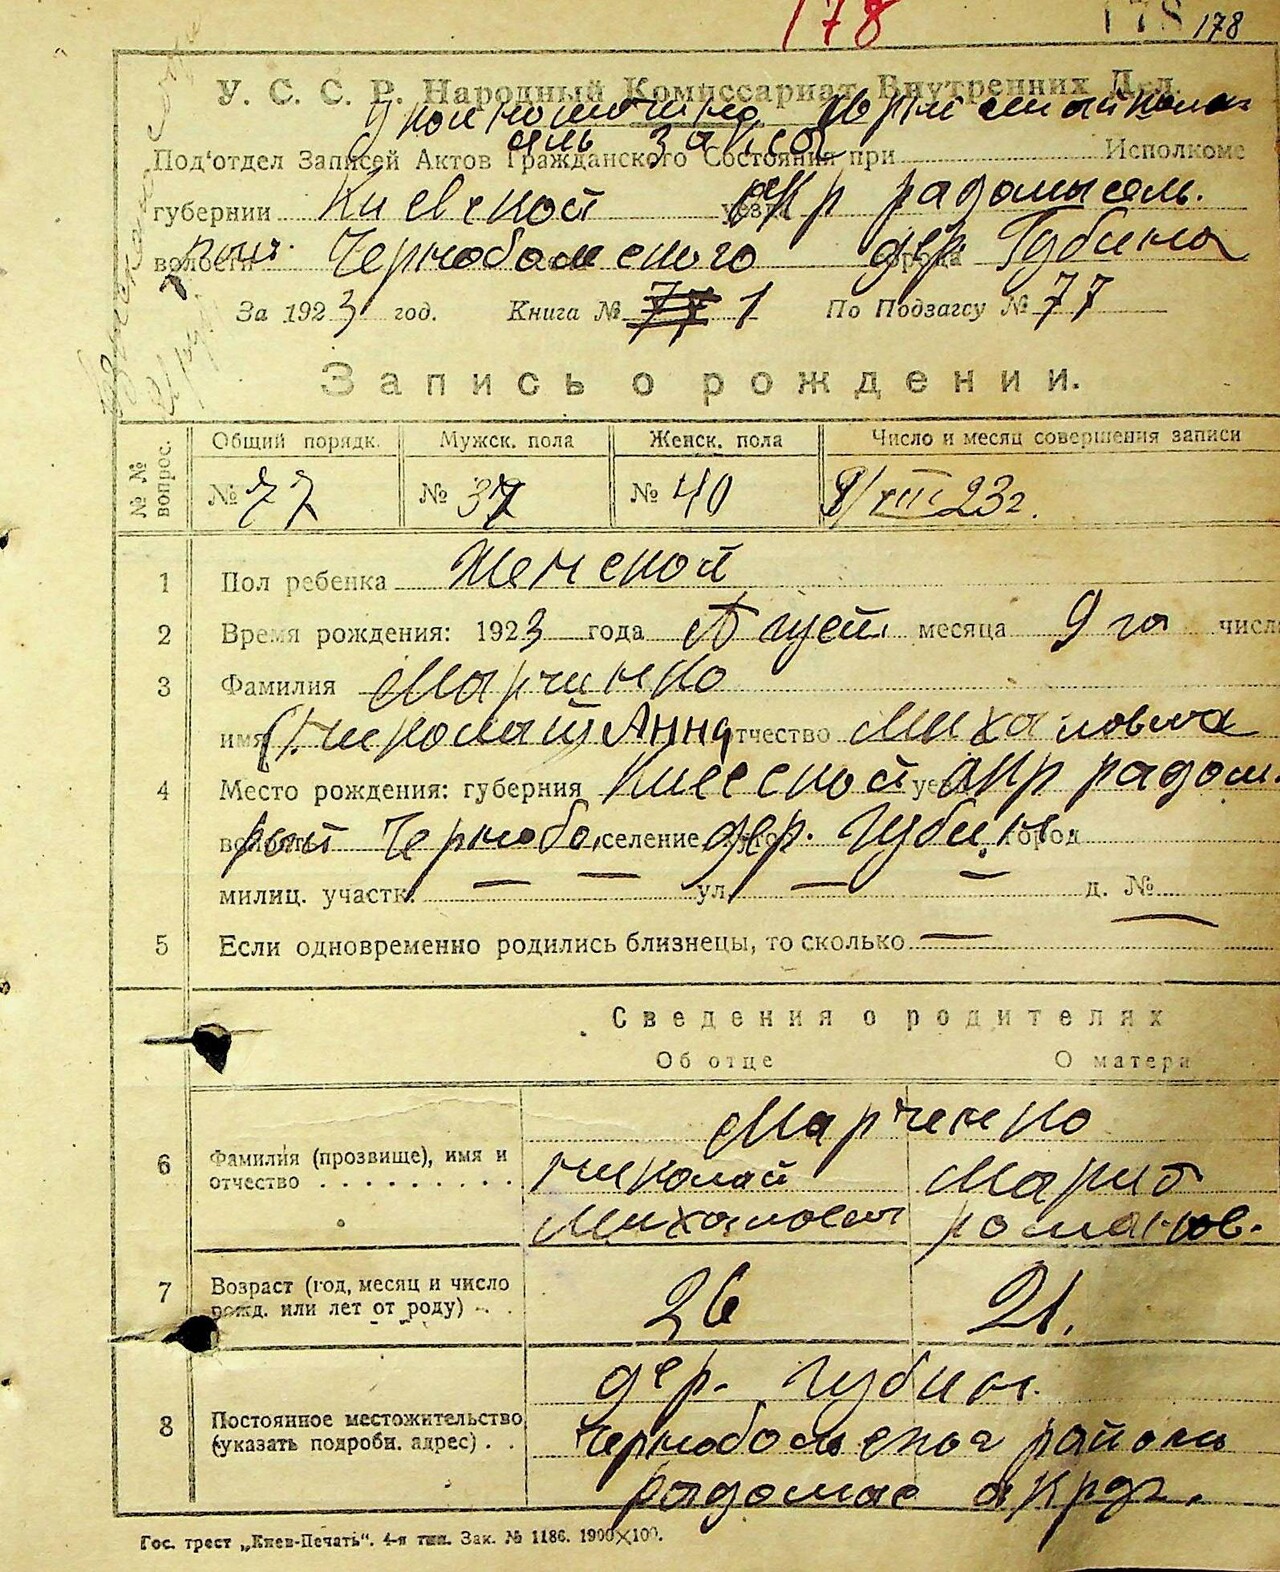 178 178 178
У. С. С. Р. Народный Комиссариат Внутренних Дел.
Под'отдел Записей Актов Гражданского Состояния при Исполкоме
губернии Киевской уезда окр радомысль.
волости Чернобольского города дер Губино
За 1923 год. Книга № 77 1 По Подзагсу № 77
Запись о рождении.
№ № вопрос. Общий порядк. Мужск. пола Женск. пола Число и месяц совершения записи
№ 77 № 37 № 40 9/XII 23г.
1 Пол ребенка Женской
2 Время рождения: 1923 года Август. месяца 9 го число
3 Фамилия Марчинко
имя Анна отчество Михаловна
4 Место рождения: губерния Киевской уезд окр радом.
волость Чернобо. селение дер. Губин. город
милиц. участк. — — ул. — — д. № —
5 Если одновременно родились близнецы, то сколько —
Сведения о родителях
Об отце О матери
Марченко
6 Фамилия (прозвище), имя и отчество
николай Мария
Михалович романов.
7 Возраст (год, месяц и число рожд. или лет от роду)
26 21.
8 Постоянное местожительство (указать подробн. адрес)
дер. Губин.
Чернобольског района
радомыс окрдг.
Гос. трест „Киев-Печать“. 4-я тип. Зак. № 1186. 1900×100.